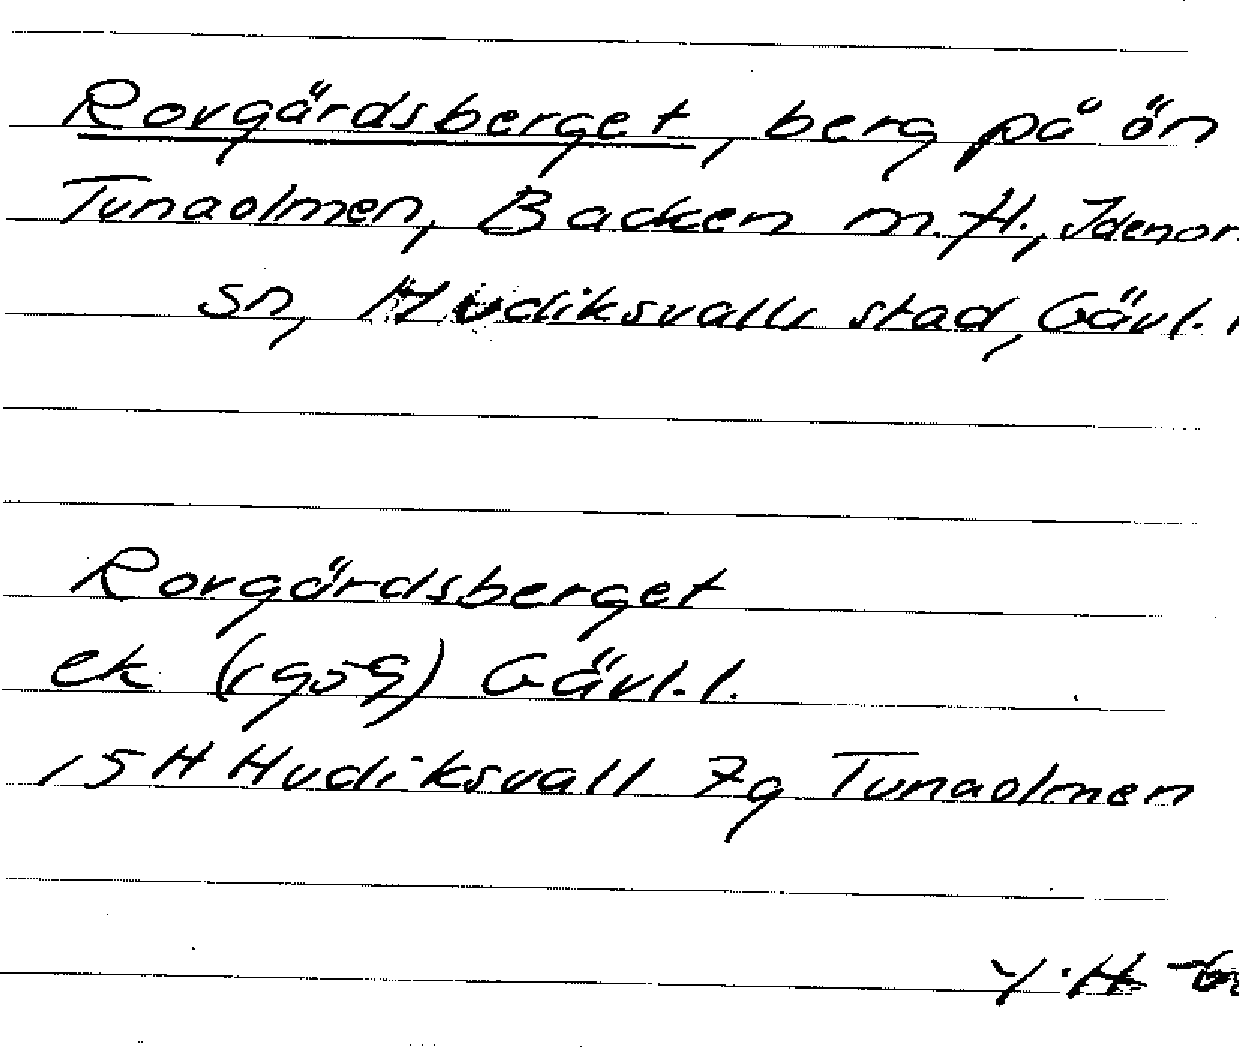 Rovgärdsberget, berg på ön
Tunaolmen, Backen m.fl., Idenor
sn, Hudiksvalls stad, Gävl. l
Rovgärdsberget
ek (1959) Gävl.l.
15H Hudiksvall 7g Tunaolmen